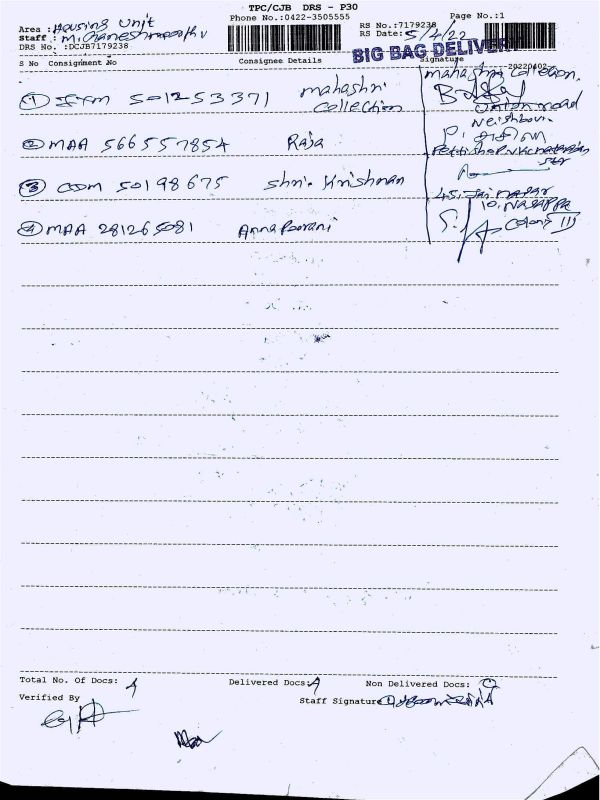 TPC/CJB DRS - P30
Phone No.:0422-3505555
Page No.:1
Area : Housing Unit
Staff :
DRS No. :DCJB7179238
RS No.:7179238
RS Date: 5/4/22
BIG BAG DELIVER
S No Consignment No Consignee Details Signature
20220402
① ITM 501253371 mahashri collection
mahashri collection.
Union road
② MAA 566557854 Raja
③ COM 50198675 shri. Krishnan
45. Jai nagar
④ MAA 281265081 Anna Poorani
10. Nagappa
colony III
Total No. Of Docs: 4 Delivered Docs: 4 Non Delivered Docs: 0
Verified By Staff Signature